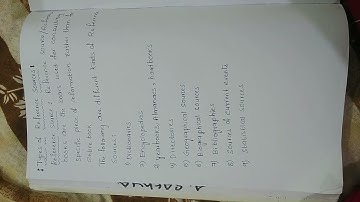 * Types of Reference Sources:
Reference Source: Reference Source/Reference
books are the books used for consulting
specific piece of information rather than
entire book.
The following are different kinds of Reference
Sources:
1) Dictionaries
2) Encyclopedias
3) Yearbooks, Almanacs & handbooks
4) Directories
5) Geographical Sources
6) Biographical Sources
7) Bibliographies
8) Sources of Current events
9) Statistical Sources